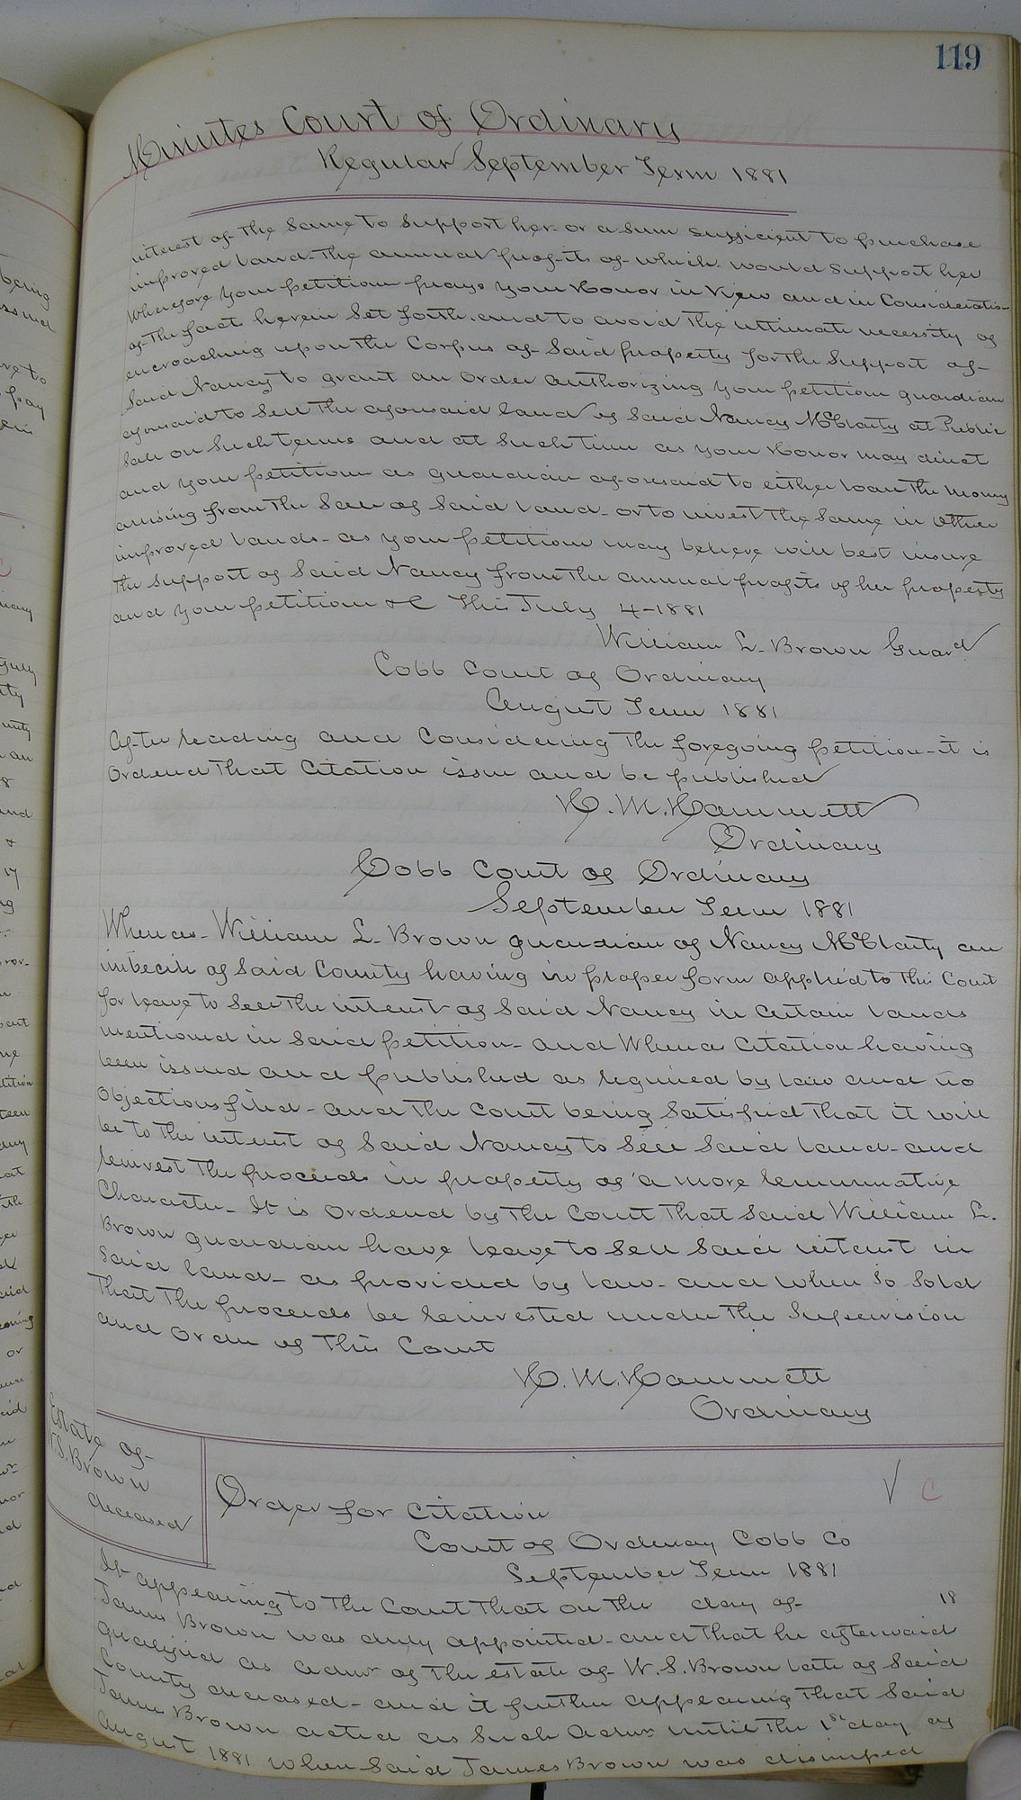 119
Minutes Court of Ordinary
Regular September Term 1881
interest of the same to support her or a sum sufficient to purchase
improved land the annual profits of which would support her
Wherefore your petition prays your Honor in view and in Consideration
of the facts herein set forth and to avoid the ultimate necessity of
encroaching upon the Corpus of said property for the support of
Said Nancy to grant an order authorizing your petition guardian
aforesaid to sell the aforesaid land of said Nancy McClarty at Public
Sale on such terms and at such time as your Honor may direct
and your petition as guardian aforesaid to either loan the money
arising from the sale of said land or to invest the same in other
improved lands as your petition may believe will best insure
the support of said Nancy from the annual profits of her property
and your petition &C This July 4-1881
William L. Brown Guard
Cobb Court of Ordinary
August Term 1881
After reading and Considering the foregoing petition it is
Ordered that Citation issue and be published
H. M. Hammett
Ordinary
Cobb Court of Ordinary
September Term 1881
Whereas William L. Brown guardian of Nancy McClarty an
imbecile of said County having in proper form applied to this Court
for leave to sell the interest of said Nancy in certain lands
mentioned in said petition and Whereas Citation having
been issued and published as required by law and no
Objections filed and the Court being satisfied that it will
be to the interest of said Nancy to sell said land and
reinvest the proceeds in property of a more remunerative
Character It is ordered by the Court that said William L.
Brown guardian have leave to sell said interest in
said land as provided by law and when so sold
that the proceeds be reinvested under the Supervision
and order of this Court
H. M. Hammett
Ordinary
Estate of
W.S. Brown
deceased
Order for Citation
C
Court of Ordinary Cobb Co
September Term 1881
It appearing to the Court that on the day of 18
James Brown was duly appointed and that he afterward
qualified as admr of the estate of W. S. Brown late of said
County deceased and it further appearing that said
James Brown acted as such admr until the 1st day of
August 1881 when said James Brown was dismissed